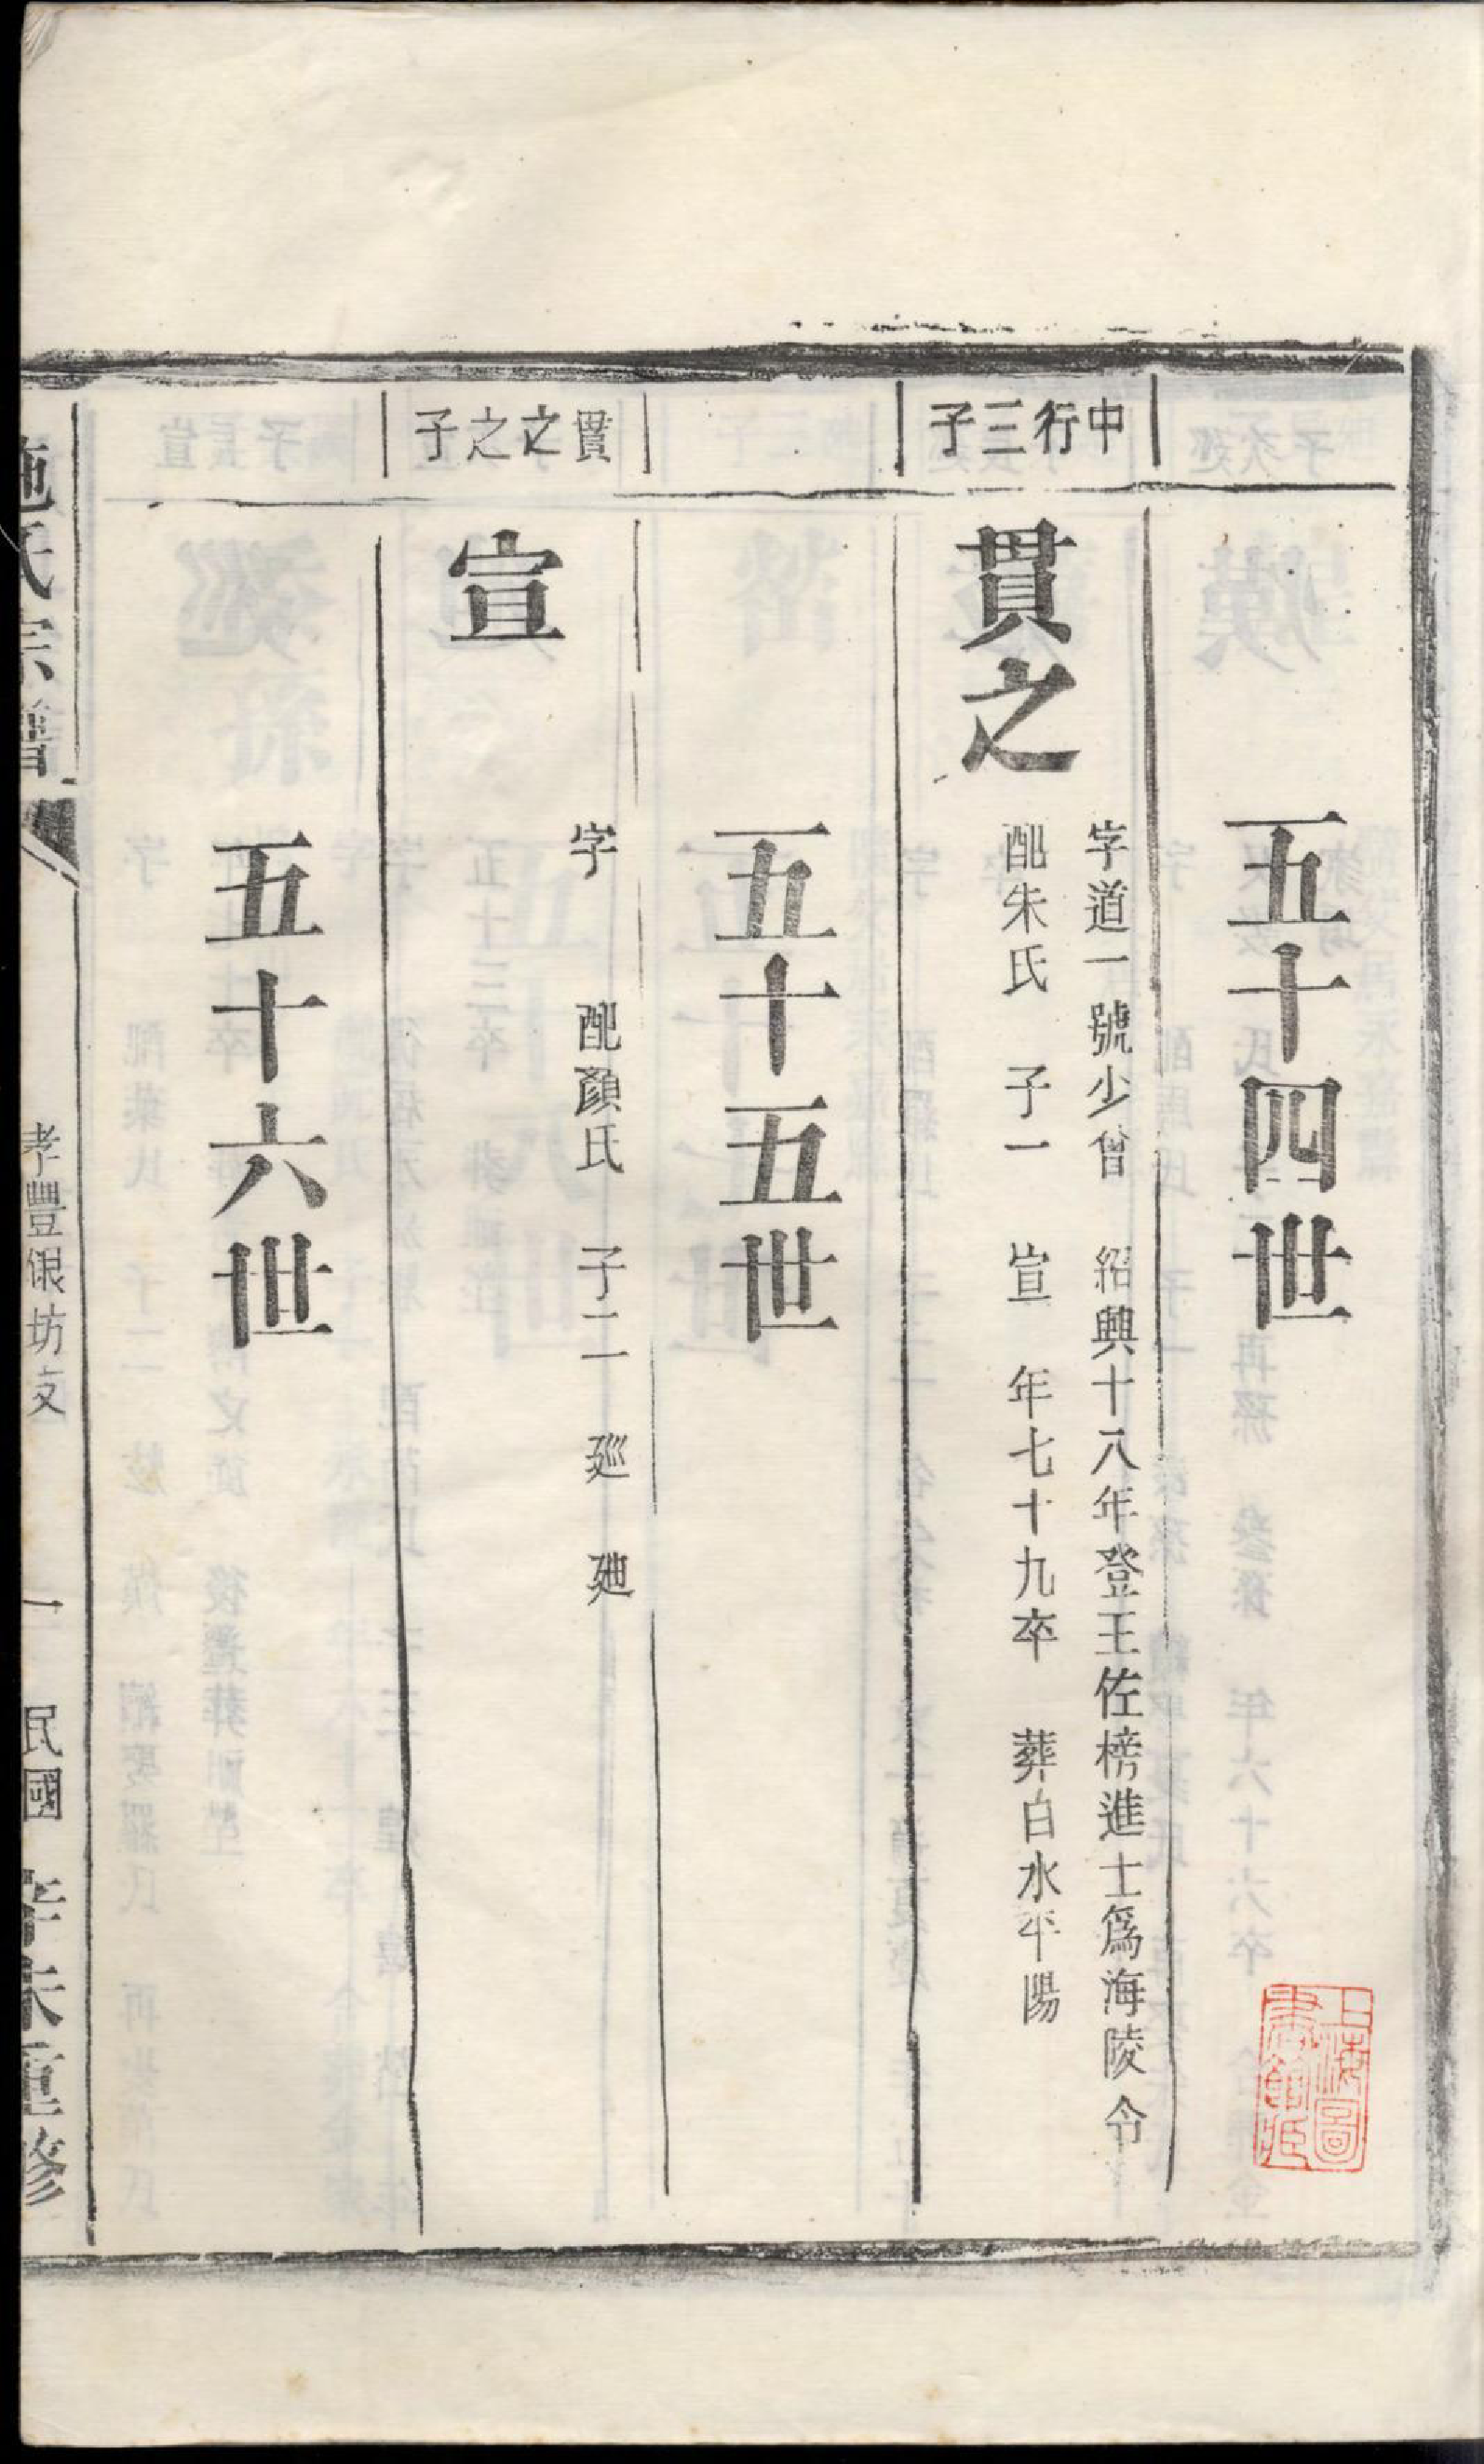 五十四世
中行三子
貫之
字道一號少曾 紹興十八年登王佐榜進士爲海陵令
配朱氏 子一 宣 年七十九卒 葬白水平陽
五十五世
貫之之子
宣
字 配顏氏 子二 廵 廸
五十六世
施氏宗譜
孝豐銀坊支
一
民國
修
上海圖書館藏